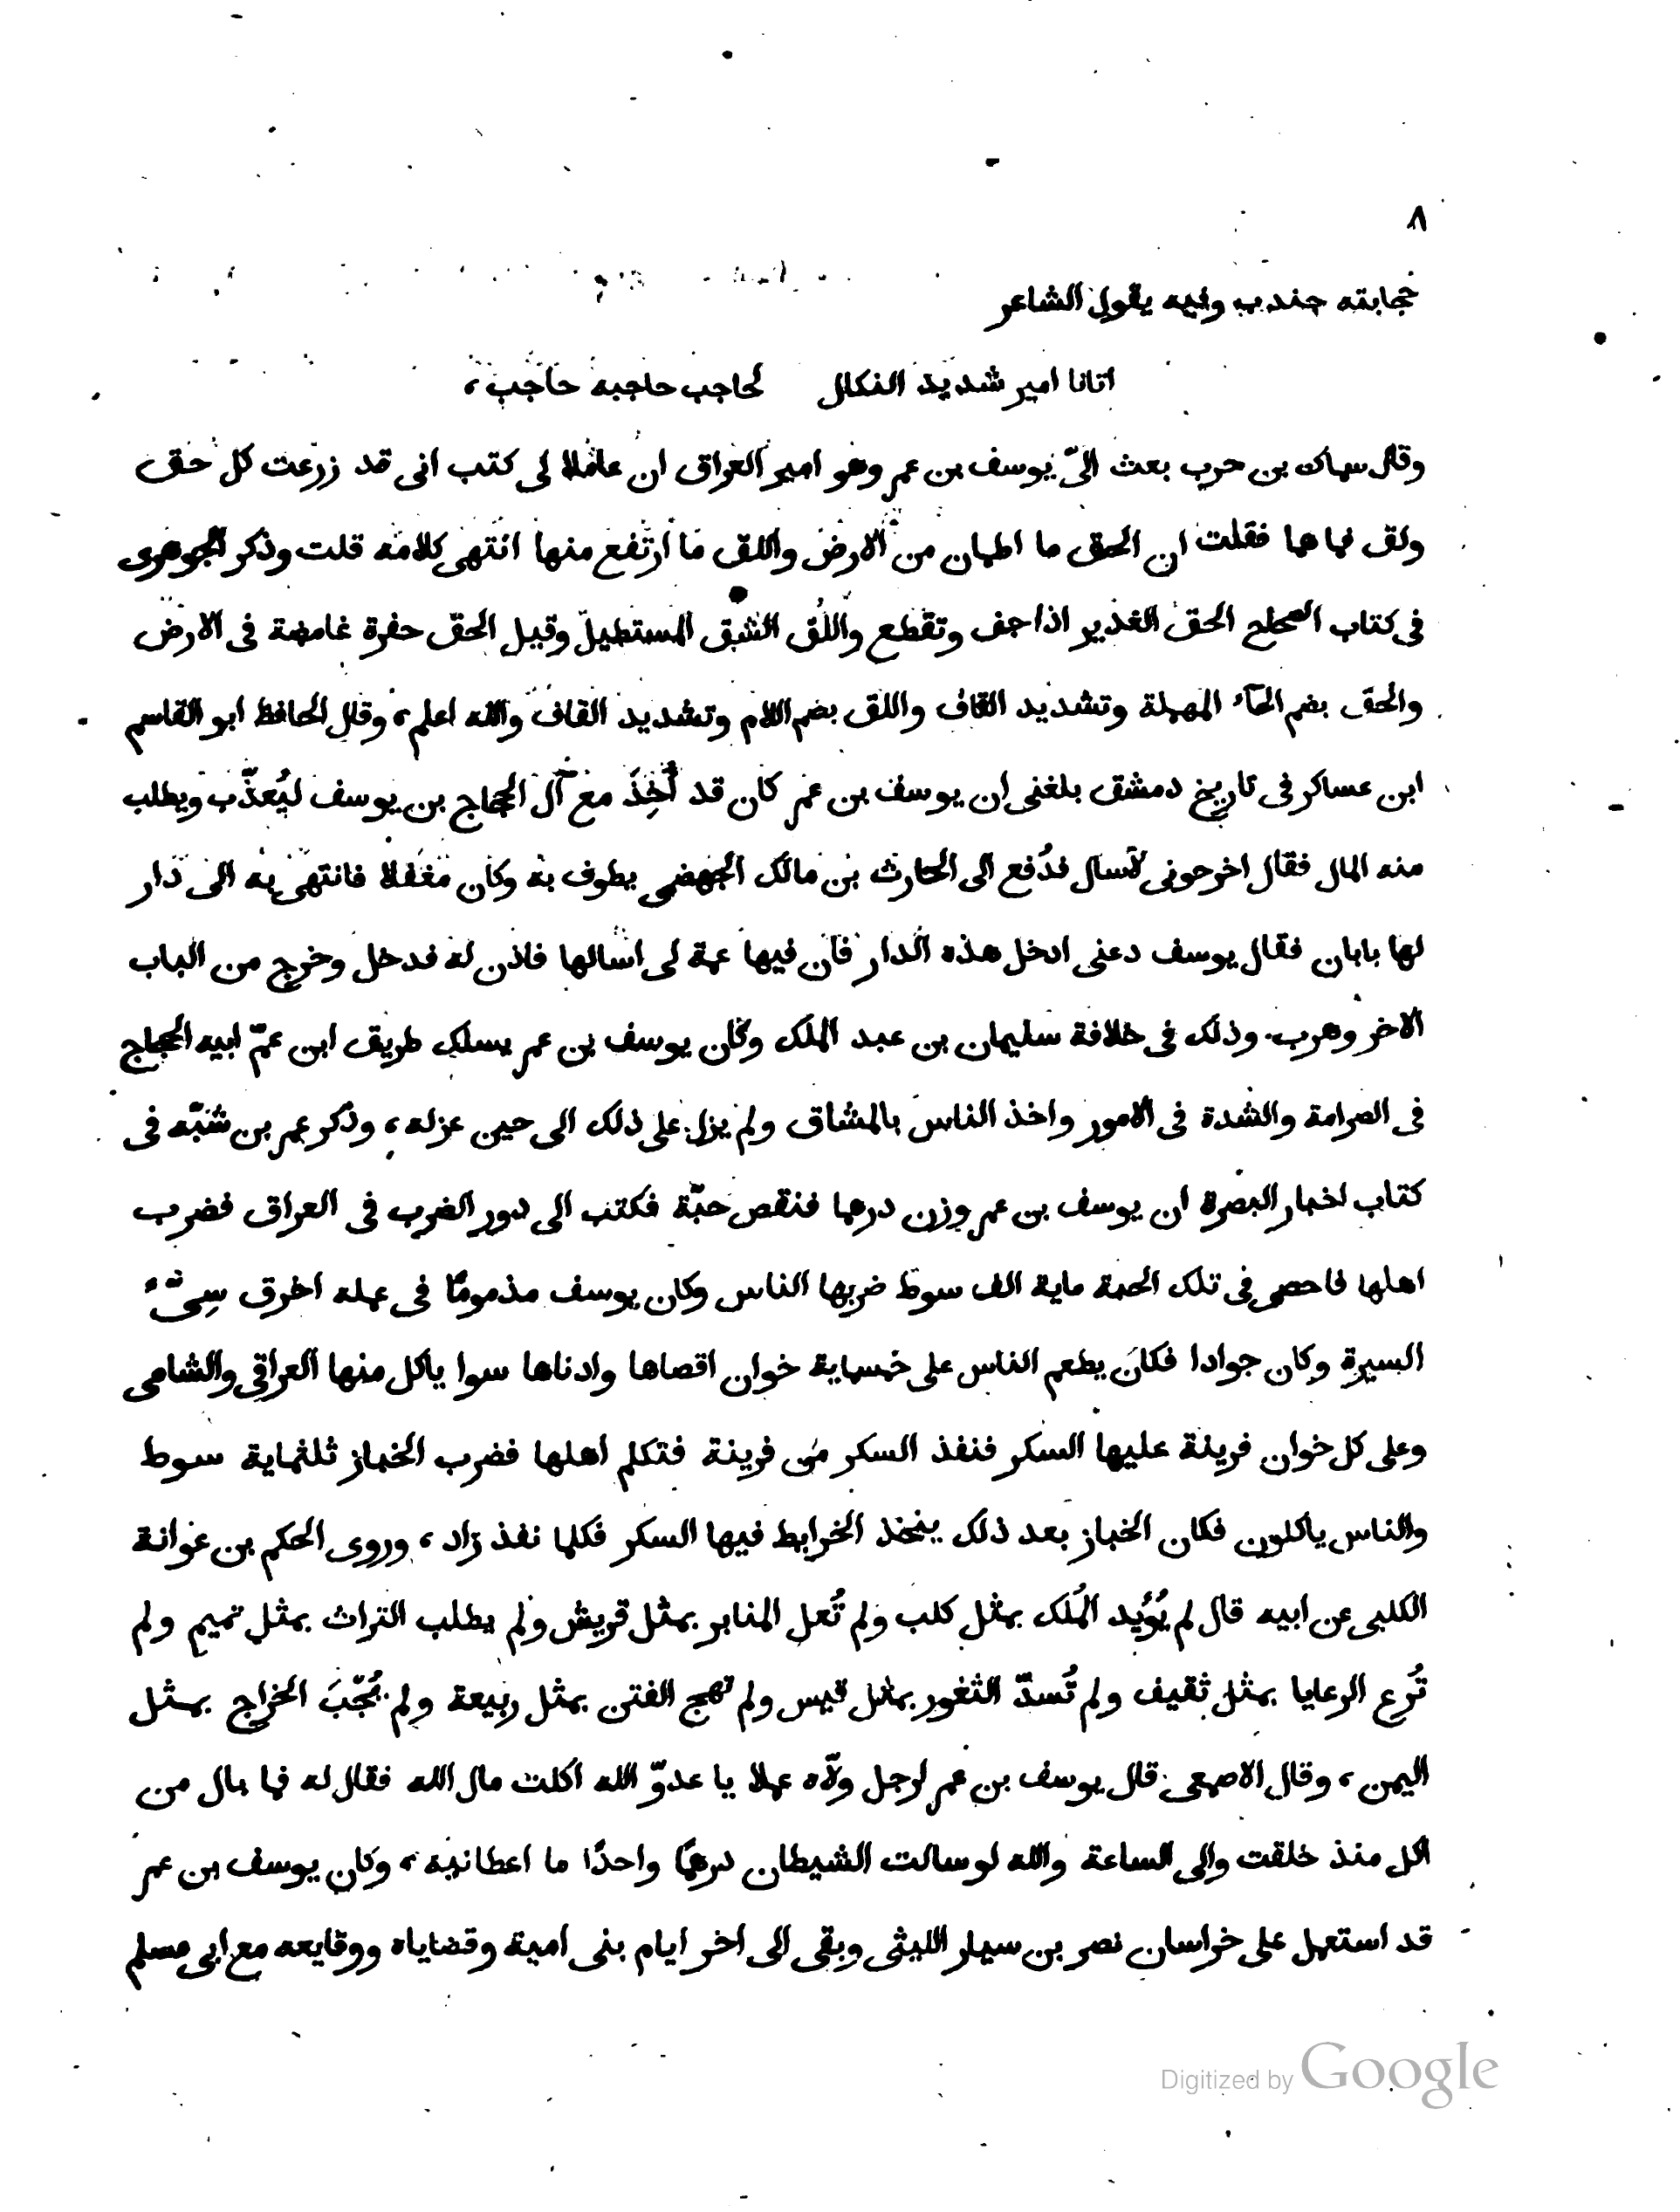 ٨
حجابته جندب وفيه يقول الشاعر
اتانا امير شديد النكال لحاجب حاجبه حاجب،
وقال سماك بن حرب بعث الىّ يوسف بن عمر وهو امير العراق ان عاملا لى كتب انى قد زرعت كل حق
ولق فما هما فقلت ان الحق ما اطمان من الارض واللق ما ارتفع منها انتهى كلامه قلت وذكر الجوهرى
فى كتاب الصحاح الحق الغدير اذا جف وتقطع واللُق الشق المستطيل وقيل الحق حفرة غامضة فى الارض
والحق بضم الحآء المهملة وتشديد القاف واللق بضم اللام وتشديد القاف والله اعلم، وقال الحافظ ابو القاسم
ابن عساكر فى تاريخ دمشق بلغنى ان يوسف بن عمر كان قد أُخِذَ مع آل الحجاج بن يوسف ليُعذّب ويطلب
منه المال فقال اخرجونى لأسال فدُفع الى الحارث بن مالك الجهضمى يطوف به وكان مغفلا فانتهى به الى دار
لها بابان فقال يوسف دعنى ادخل هذه الدار فان فيها عمة لى اسالها فاذن له فدخل وخرج من الباب
الاخر وهرب وذلك فى خلافة سليمان بن عبد الملك وكان يوسف بن عمر يسلك طريق ابن عمّ ابيه الحجاج
فى الصرامة والشدة فى الامور واخذ الناس بالمشاق ولم يزل على ذلك الى حين عزله، وذكر عمر بن شبّه فى
كتاب اخبار البصرة ان يوسف بن عمر وزن درهما فنقص حبّة فكتب الى دور الضرب فى العراق فضرب
اهلها فاحصى فى تلك الحبة ماية الف سوط ضربها الناس وكان يوسف مذمومًا فى عمله اخرق سِىّء
السيرة وكان جوادا فكان يطعم الناس على خمسماية خوان اقصاها وادناها سوا ياكل منها العراقى والشامى
وعلى كل خوان فرينة عليها السكر فنفذ السكر من فرينة فتكلم اهلها فضرب الخباز ثلثماية سوط
والناس ياكلون فكان الخباز بعد ذلك يتخذ الخرايط فيها السكر فكلما نفذ زاد، وروى الحكم بن عوانة
الكلبى عن ابيه قال لم يُؤيد المُلك بمثل كلب ولم تُعل المنابر بمثل قريش ولم يطلب التراث بمثل تميم ولم
تُرع الرعايا بمثل ثقيف ولم تُسدّ الثغور بمثل قيس ولم تهج الفتن بمثل ربيعة ولم يُجّبَ الخراج بمثل
اليمن، وقال الاصمعى قال يوسف بن عمر لرجل ولّاه عملا يا عدوّ الله اكلت مال الله فقال له فما بال من
اكل منذ خلقت والى الساعة والله لو سالت الشيطان درهمًا واحدًا ما اعطانيه، وكان يوسف بن عمر
قد استعمل على خراسان نصر بن سيار الليثى وبقى الى اخر ايام بنى امية وقضاياه ووقايعه مع ابى مسلم
Digitized by Google